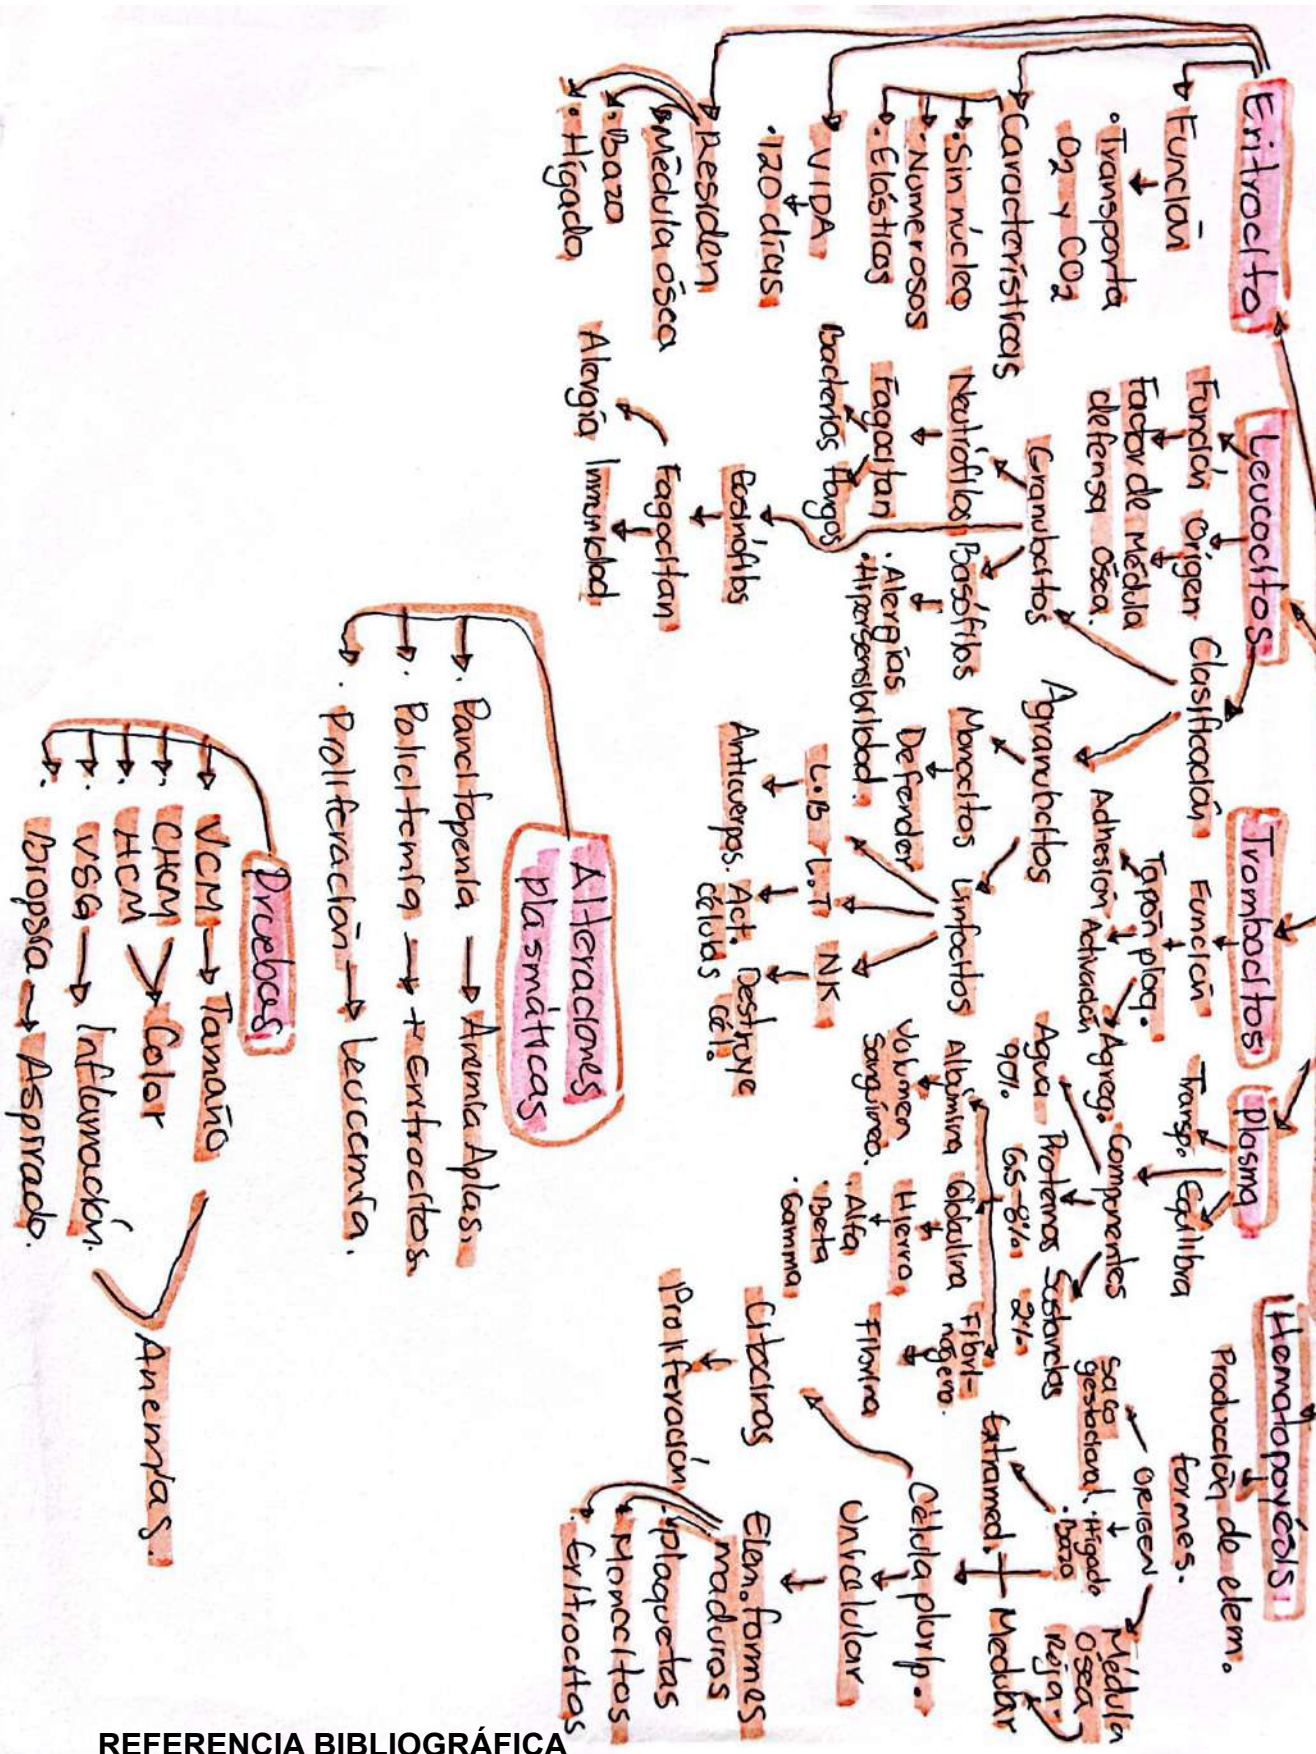 Eritrocito
Función
· Transporta
O2 y CO2
Características
· Sin núcleo
· Numerosos
· Elásticos
VIDA
· 120 días
Residen
Médula ósea
· Bazo
· Hígado
Leucocitos
Función
Factor de
defensa
Origen
Médula
Ósea.
Clasificación
Granulocitos
Neutrófilos
Fagocitan
Bacterias
Hongos
Basófilos
· Alergias
· Hipersensibilidad.
Eosinófilos
Fagocitan
Alergia
Inmunidad
Agranulocitos
Monocitos
Defender
Linfocitos
L.B
Anticuerpos.
L.T
Act.
células
NK
Destruye
cél.
Trombocitos
Función
Tapón plaq.
Adhesión
Activación
Agreg.
Plasma
Transp.
Equilibra
Componentes
Agua
90%
Proteínas
6.5-8%
Sustancias
2%
Albúmina
Volumen
Sanguíneo.
Globulina
Hierro
· Alfa
· Beta
· Gamma
Fibri-
nógeno.
Fibrina
Hematopoyésis
Producción de elem.
formes.
ORIGEN
Saco
gestacional
· Hígado
· Bazo
Médula
Ósea
Roja
Extramed.
Medular
Célula plurip.
Citocinas
Proliferación
Unicelular
Elem. formes
maduros
· plaquetas
· Monocitos
· Eritrocitos
Alteraciones
plasmáticas
· Pancitopenia → Anemia Aplas.
· Policitemia → + Eritrocitos.
· Proliferación → Leucemia.
Pruebas
VCM → Tamaño
CHCM
HCM
Color
VSG → Inflamación.
Biopsia → Aspirado.
Anemias.
REFERENCIA BIBLIOGRÁFICA